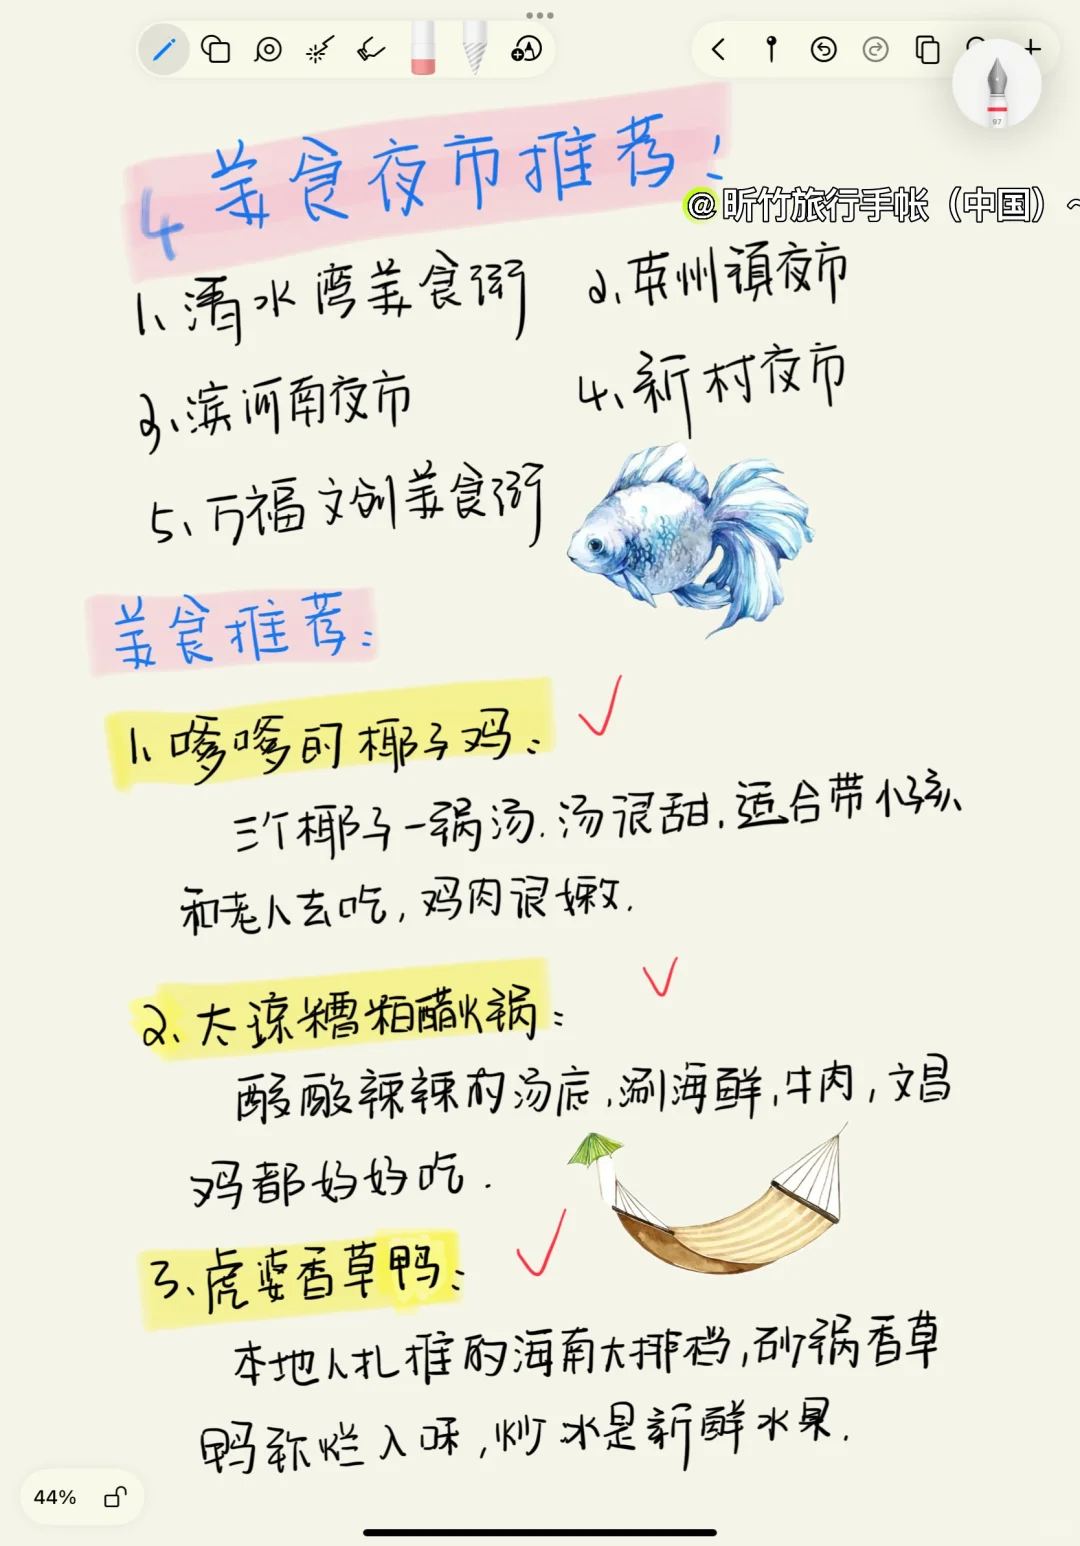 4 美食夜市推荐:
@昕竹旅行手帐（中国）~
1、清水湾美食街 2、英州镇夜市
3、滨河南夜市 4、新村夜市
5、万福文创美食街
美食推荐:
1、嗲嗲的椰子鸡:
三个椰子一锅汤.汤很甜,适合带小孩
和老人去吃,鸡肉很嫩.
2、大琼糟粕醋火锅:
酸酸辣辣的汤底,涮海鲜,牛肉,文昌
鸡都好好吃.
3、虎婆香草鸭:
本地人扎推的海南大排档,砂锅香草
鸭软烂入味,炒冰是新鲜水果.
97
44%